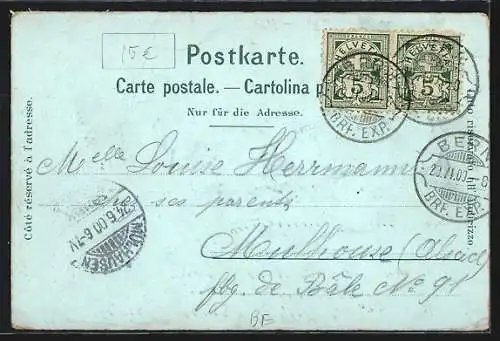 15 €
Postkarte.
Carte postale. — Cartolina p
Nur für die Adresse.
Côté réservé à l'adresse.
HELVETIA
5
HELVETIA
5
BRF. EXP.
BERN
BRF. EXP.
Melle Louise Herrmann
ses parents
Mulhouse (Alsace)
fbg. de Bâle No 91
MÜLHAUSEN
24.6.00.6-7V.
BE